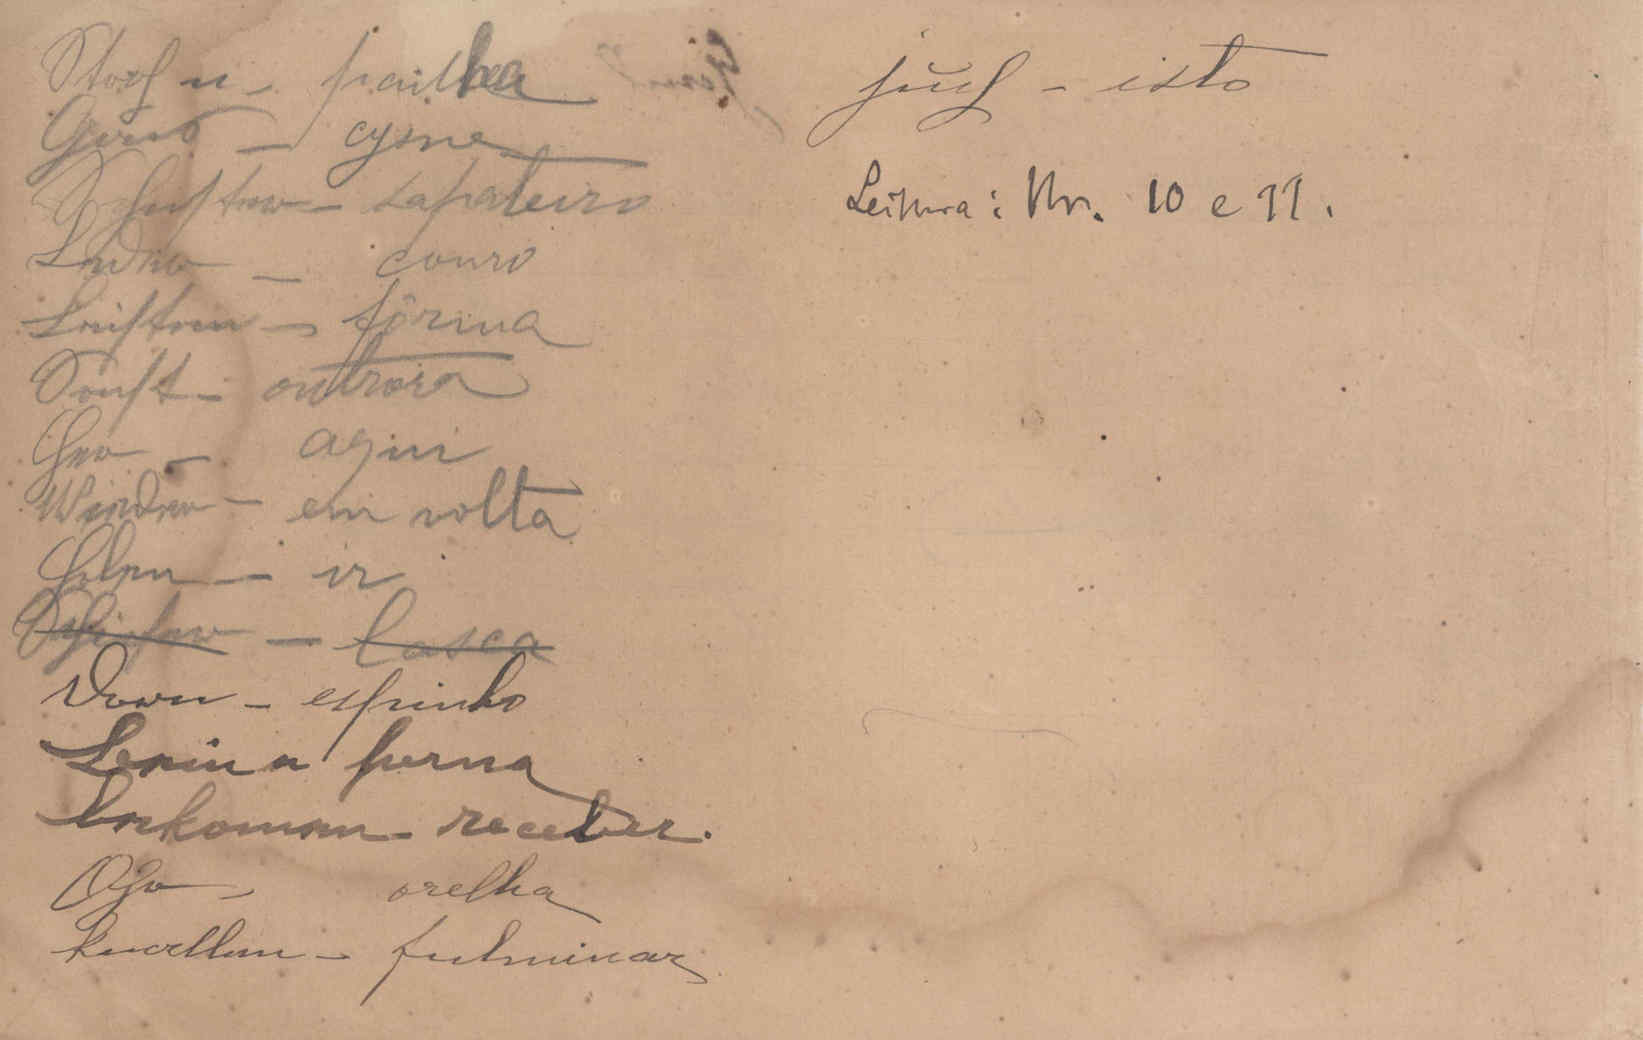 Stroh – palha
Gans – cysne
Schuster – sapateiro
Leder – couro
Leisten – fôrma
Sonst – outrora
Her – aqui
Wieder – em volta
Holen – ir
Schiefer – lasca
Dorn – espinho
Bein – perna
bekommen – receber.
Ohr – orelha
knallen – fulminar
juch – isto
Leitura: Nr. 10 e 11.